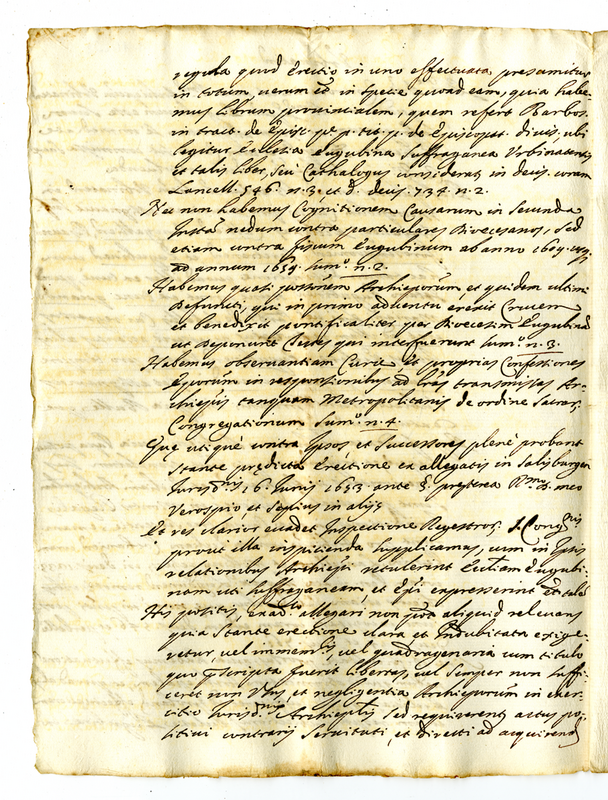 regula quod Erectio in uno effectuata presumitur
in totum, verum et in specie quoad eam, quia habe-
mus librum provincialem, quem refert Barbos.
in tract. de Episc. pe. p. tit. p. de Episcopat. divis, ubi
legitur Ecclesia Eugubina suffraganea Urbinatensis
et talis liber, seu Cathalogus consideratur in decis. coram
Lancell. 546. n. 3. et d. decis. 734. n. 2.
Nec non habemus Cognitionem Causarum in secunda
Instã nedum contra particulares Dioecesanos, sed
etiam contra fiscum Eugubinum ab anno 1604. usq
ad annum 1659. sumo. n. 2.
Habemus quasi possnem Archieporum, et quidem ultimi
Defuncti, qui in primo adventu erexit Crucem
et benedixit pontificaliter per Dioecesim Eugubinã
ut deponunt testes qui interfuerunt sumo. n. 3.
Habemus observantiam Curiæ, et proprias Confessiones
Eporum in responsionibus ad lras transmissas Ar-
chiepis tanquam Metropolitanis de ordine Sacrar.
Congregationum Sumo. n. 4.
Quæ utique contra Ipsos, et Successores plenè probant
Stante predicta Erectione ex allegatis in Salisburgen
Jurisdnis 16. Junij 1653 ante §. preterea Rmo. D. meo
Verospio, et sepius in alijs
Et res clarior evadet Inspectione Regestror. S. Congnis
prout illa conspicienda supplicamus, cum in Ipsis
relationibus Archiepi retulerint Eccliam Eugubi-
nam uti suffraganeam, et Epi expresserint et tales
His positis, ex adto allegari non pot aliquid relevans
quia stante erectione clara et Indubitata exige-
retur, vel immemlis, vel quadragenaria cum titulo
quo prescripta fuerit libertas, vel semper non suffi-
ceret non Usus, et negligentia Archieporum in exer-
citio Jurisdnis Archieplis sed requirerent actus po-
sitivi contrarij servituti, et directi ad acquirendã